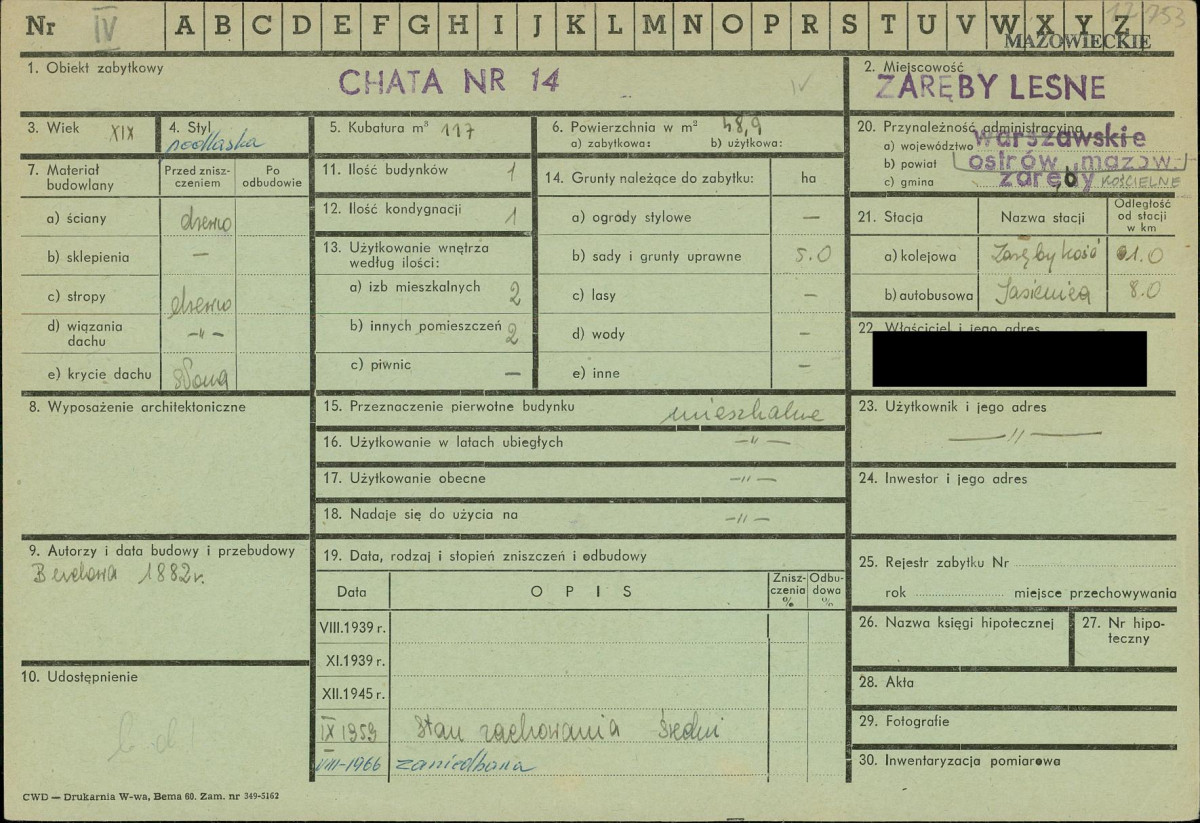 Nr IV A B C D E F G H I J K L M N O P R S T U V W X Y Z
12753
MAZOWIECKIE
1. Obiekt zabytkowy
CHATA NR 14
IV
2. Miejscowość
ZARĘBY LEŚNE
3. Wiek XIX
4. Styl
podlaska
5. Kubatura m³ 117
6. Powierzchnia w m² 48,9
a) zabytkowa: b) użytkowa:
20. Przynależność administracyjna
a) województwo warszawskie
b) powiat ostrów mazow.
c) gmina zaręby KOŚCIELNE
7. Materiał budowlany
Przed zniszczeniem
Po odbudowie
a) ściany drewno
b) sklepienia —
c) stropy drewno
d) wiązania dachu —"—
e) krycie dachu słoma
11. Ilość budynków 1
12. Ilość kondygnacji 1
13. Użytkowanie wnętrza według ilości:
a) izb mieszkalnych 2
b) innych pomieszczeń 2
c) piwnic —
14. Grunty należące do zabytku: ha
a) ogrody stylowe —
b) sady i grunty uprawne 5.0
c) lasy —
d) wody —
e) inne —
21. Stacja
Nazwa stacji
Odległość od stacji w km
a) kolejowa Zaręby Kość 1.0
b) autobusowa Jasienica 8.0
22. Właściciel i jego adres
8. Wyposażenie architektoniczne
15. Przeznaczenie pierwotne budynku mieszkalne
16. Użytkowanie w latach ubiegłych —"—
17. Użytkowanie obecne —"—
18. Nadaje się do użycia na —"—
23. Użytkownik i jego adres
—"—
24. Inwestor i jego adres
9. Autorzy i data budowy i przebudowy
Budowa 1882 r.
19. Data, rodzaj i stopień zniszczeń i odbudowy
Data
OPIS
Zniszczenia %
Odbudowa %
VIII.1939 r.
XI.1939 r.
XII.1945 r.
IX 1959 Stan zachowania średni
VIII-1966 zaniedbana
25. Rejestr zabytku Nr
rok miejsce przechowywania
26. Nazwa księgi hipotecznej
27. Nr hipoteczny
28. Akta
29. Fotografie
30. Inwentaryzacja pomiarowa
10. Udostępnienie
CWD — Drukarnia W-wa, Bema 60. Zam. nr 349-5162